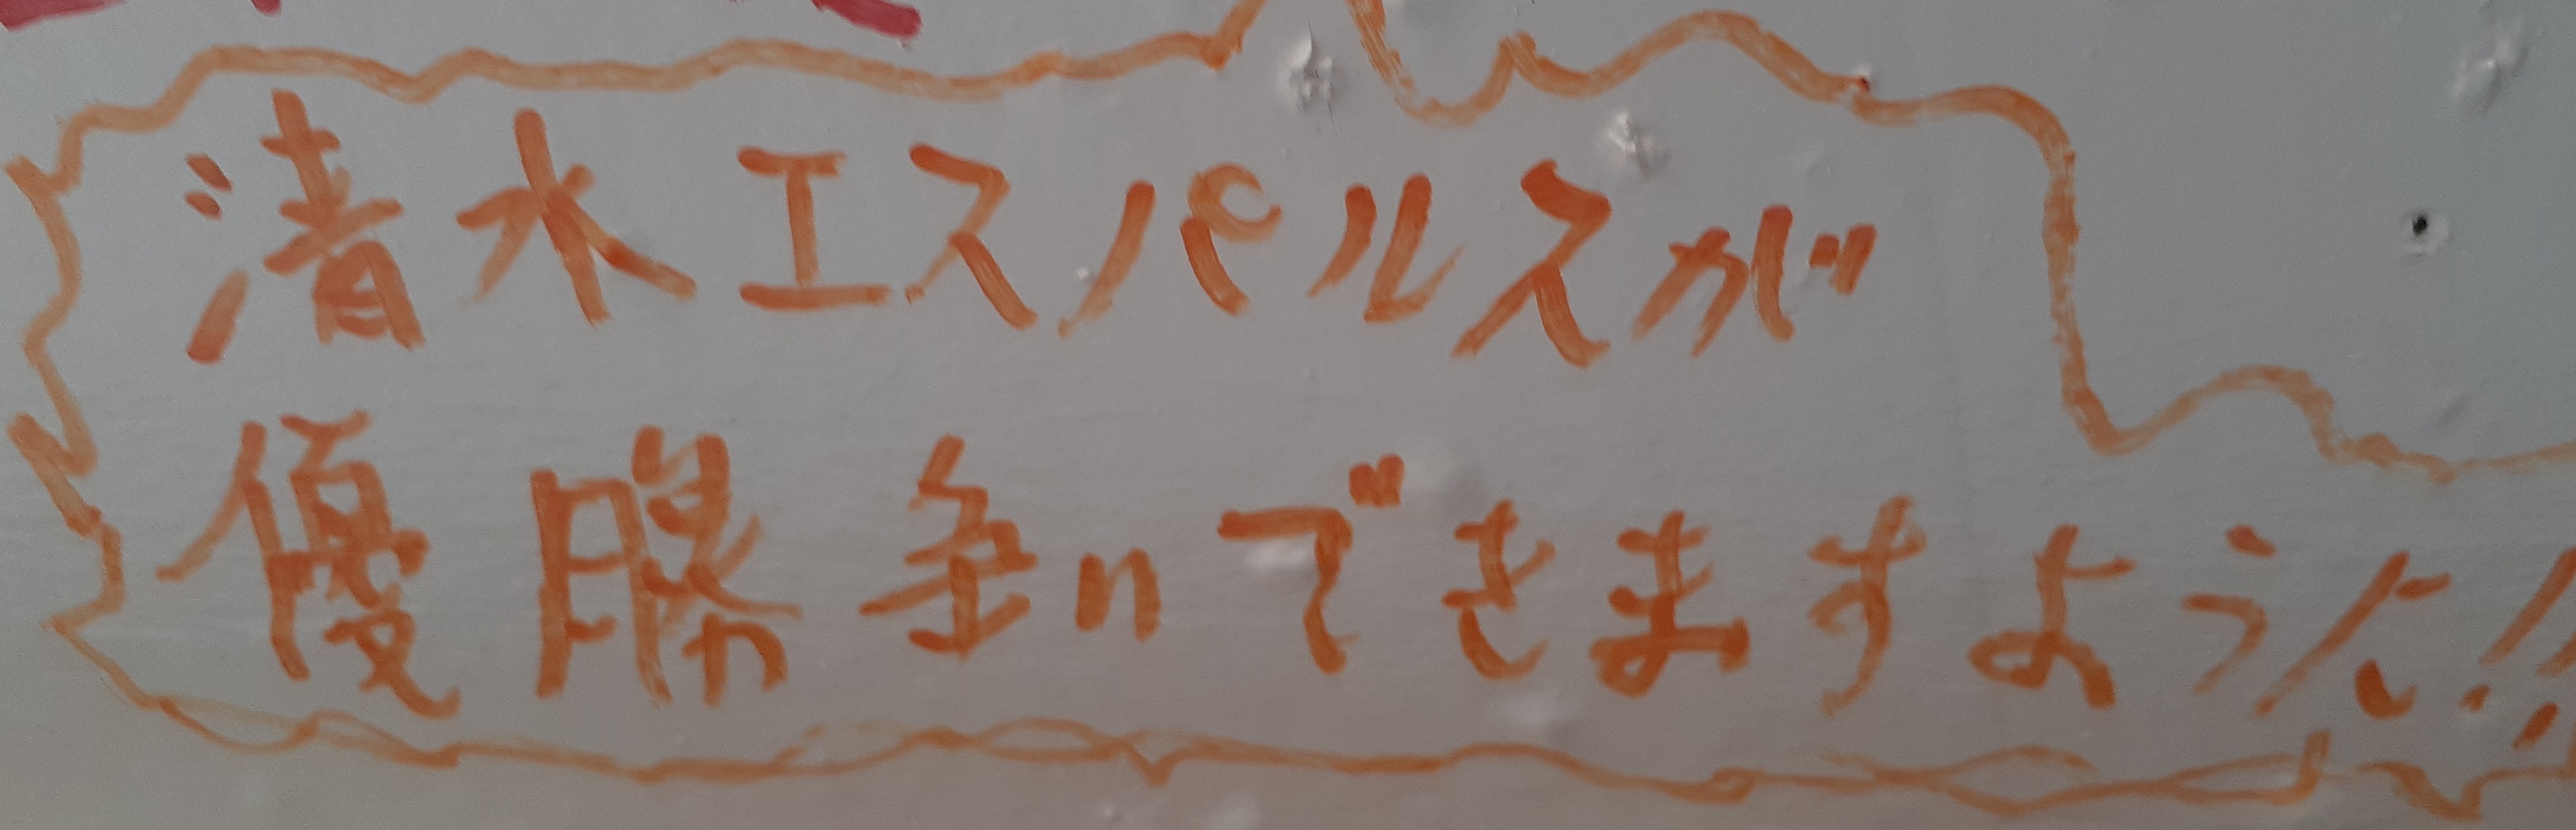 清水エスパルスが
優勝争いできますように!!